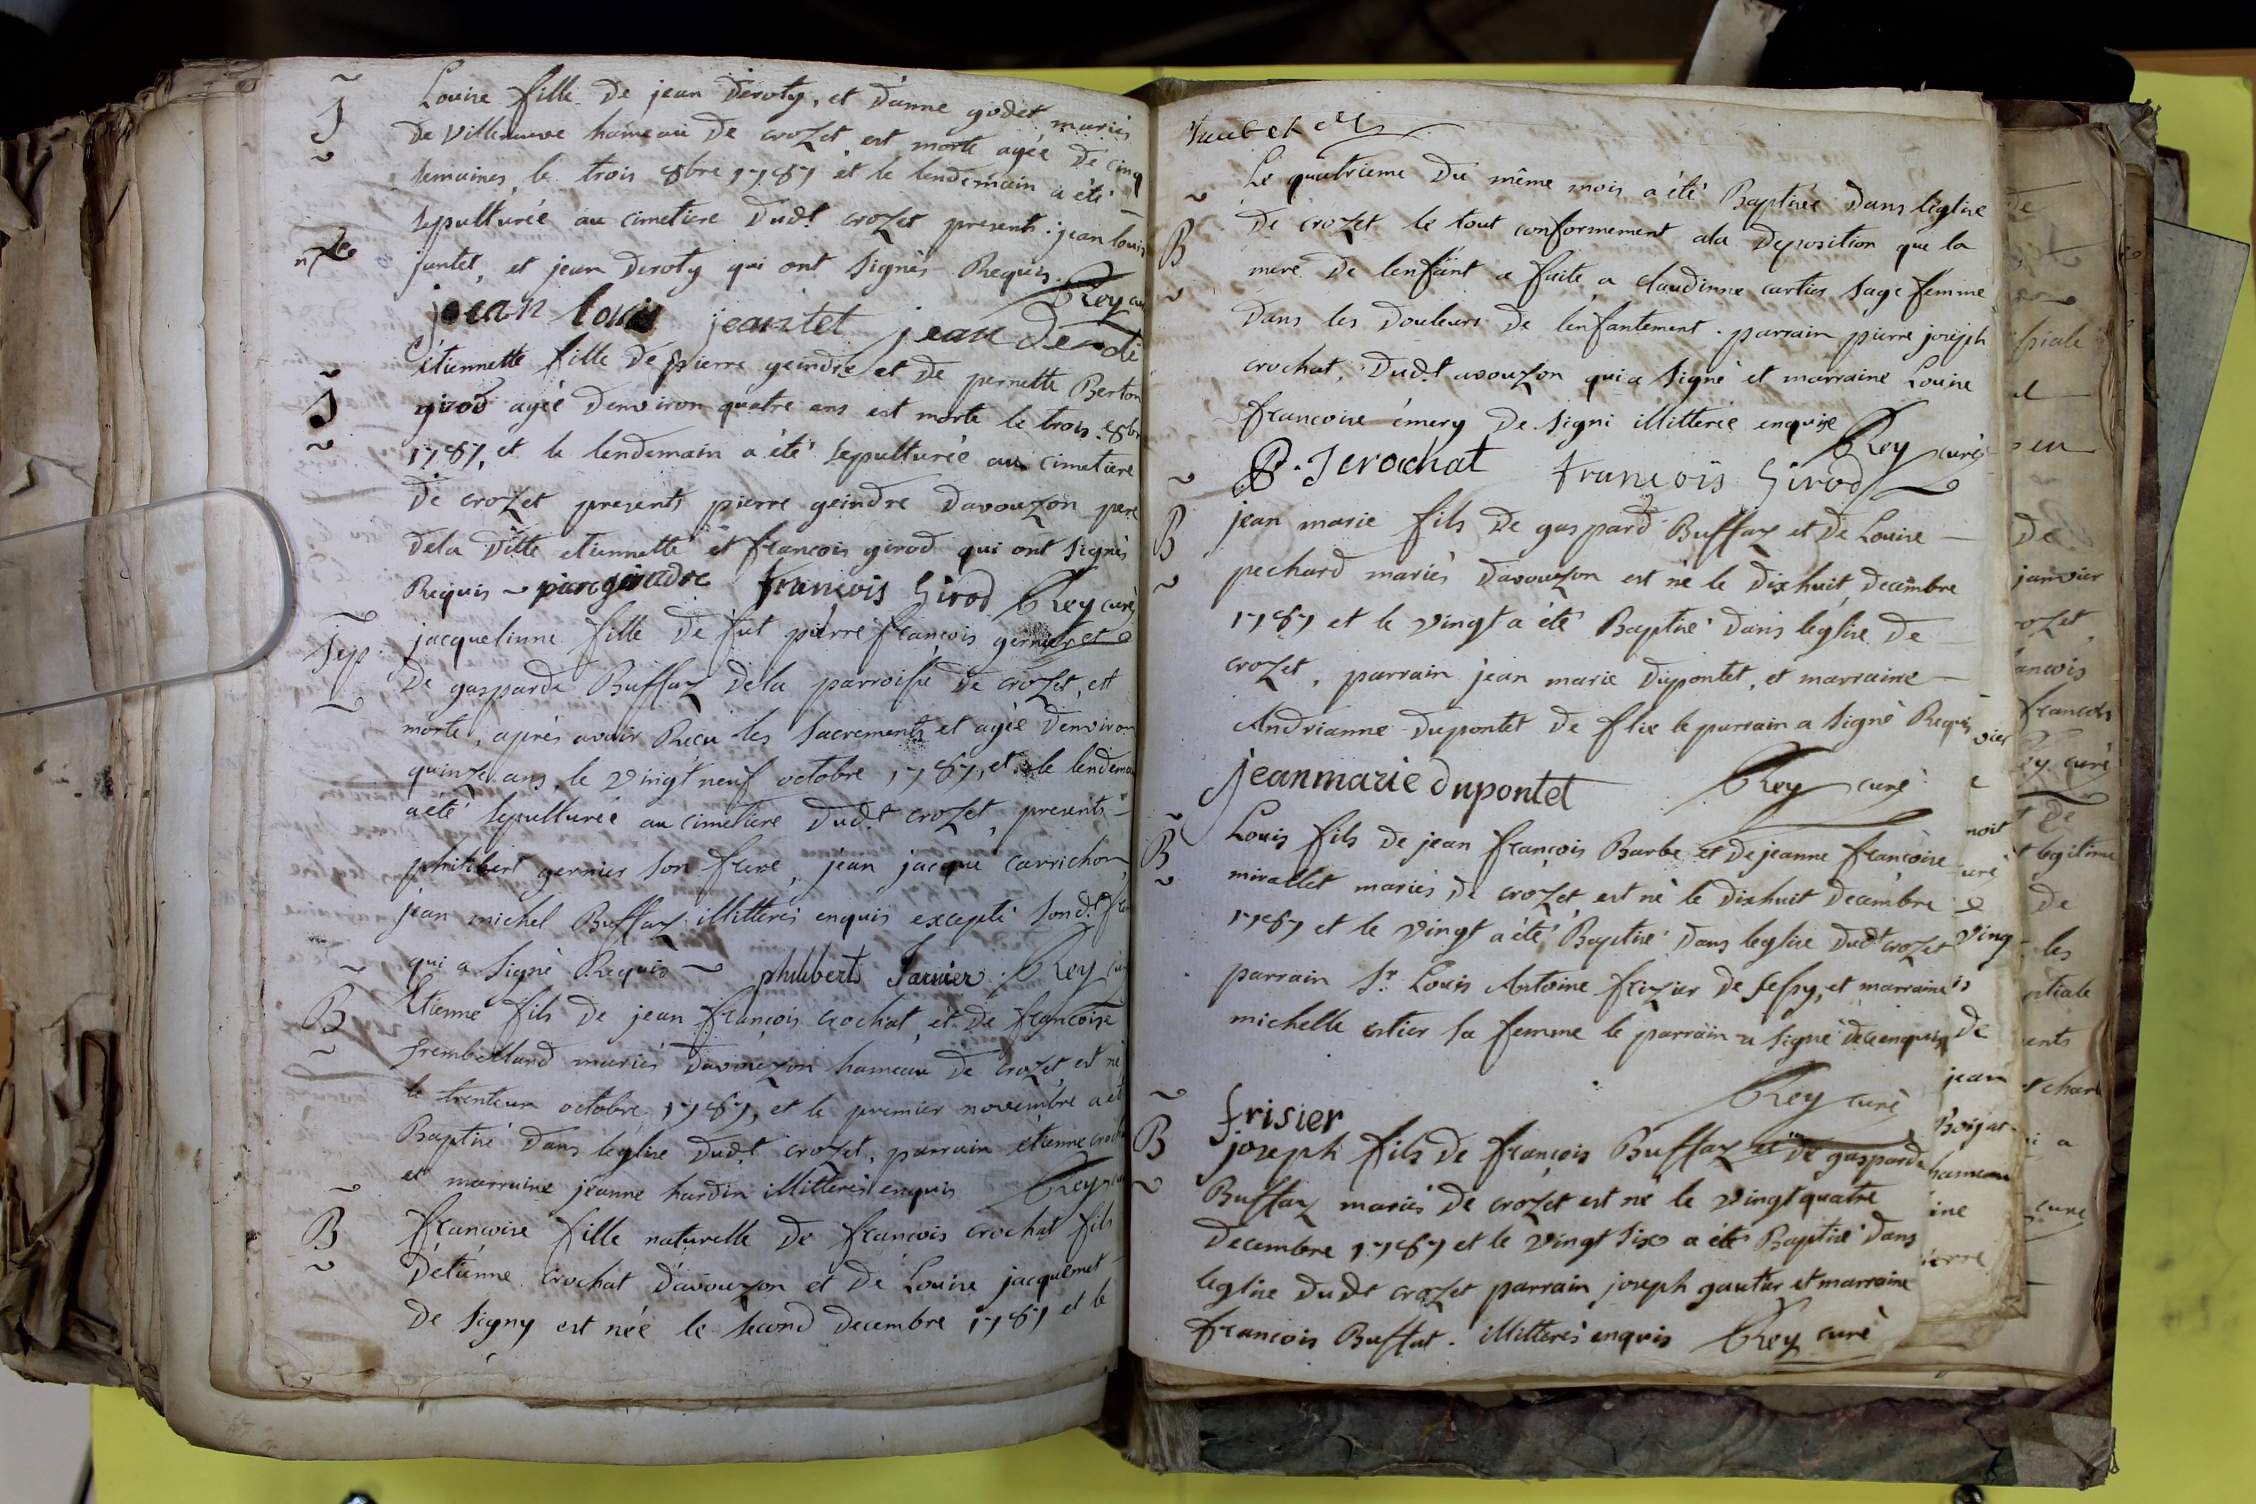 ~
S
~
Louise fille de jean deroty, et d'anne godet mariés
de villeneuve hameau de crozet est morte agée de cinq
semaines, le trois 8bre 1787 et le lendemain a été
sepulturée au cimetiere dudt crozet presents jean louis
jantet, et jean deroty qui ont signés Requis. Rey cu
jean louis jeantet jean de
~
S
~
étiennette fille de pierre geindre et de pernette Berton
girod agée denviron quatre ans est morte le trois 8br
1787, et le lendemain a été sepulturée au cimetiere
de crozet presents pierre geindre davouzon pere
dela ditte etiennette et francois girod qui ont signés
Requis ~ piere geindre francois Girod Rey curé
Sep.
jacquelinne fille de fut pierre francois gernier et
de gasparde Buffaz dela parroisse de crozet, est
morte, aprés avoir Recu les sacrements et agée denviron
quinze ans, le vingt neuf octobre 1787, et le lendema
a été sepulturée au cimetiere dudt crozet, presents
philibert gernier son frere, jean jacque carrichon,
jean michel Buffaz illitterés enquis excepté sondt
qui a signé Requis ~ philibert Rey
~
B
~
Etienne fils de jean francois crochat et de francoise
frembelland mariés davouzon hameau de crozet, est né
le trenteun octobre 1787, et le premier novembre a ét
Baptisé dans leglise dudt crozet, parrain etienne croch
et marraine jeanne hardin illitterés enquis Rey
~
B
~
francoise fille naturelle de francois crochat fils
détienne crochat davouzon et de Louise jacquemet
de signy est née le second decembre 1787 et le
~
B
~
Le quatrieme du même mois a été Baptisée dans leglise
de crozet le tout conformement ala deposition que la
mere de lenfant a faite a claudinne cartier sage femme
dans les douleurs de lenfantement. parrain pierre joseph
crochat, dudt avouzon qui a signé et marraine Louise
francoise émery de signi illitterée enquise Rey curé
P. J crochat francois Girod
~
B
~
jean marie fils de gaspard Buffaz et de Louise
pechard mariés davouzon est né le dixhuit decembre
1787 et le vingt a été Baptisé dans leglise de
crozet, parrain jean marie dupontet, et marraine
Andrianne dupontet de flie le parrain a signé Requis
jeanmarie dupontet Rey curé
~
B
~
Louis fils de jean francois Barbe et de jeanne francoise
mirallet mariés de crozet est né le dixhuit decembre
1787 et le vingt a été Baptisé dans leglise dudt crozet
parrain Sr. Louis Antoine frizier de sessy, et marraine
michelle estier sa femme le parrain a signé de ce enquis
Rey curé
frisier
~
B
~
joseph fils de francois Buffaz et de gasparde
Buffaz mariés de crozet est né le vingtquatre
decembre 1787 et le vingt six a été Baptisé dans
leglise dudt crozet parrain joseph gautier et marraine
francois Buffat. illitterés enquis Rey curé